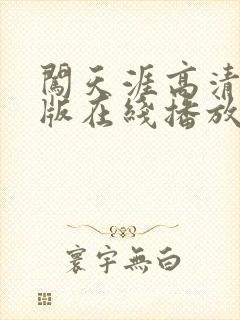 闖天涯高清
版在綫播放
寰宇無白